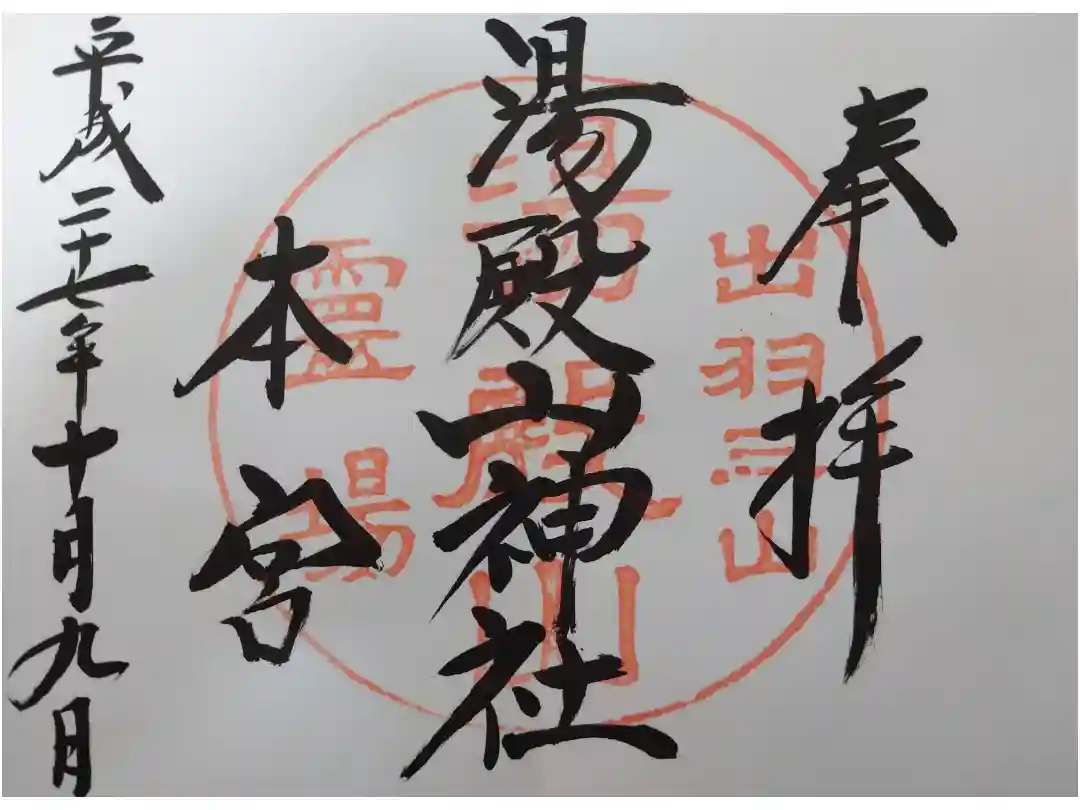 奉拝
湯殿山神社
本宮
平成二十七年十月九日
出羽三山
湯殿山
靈場